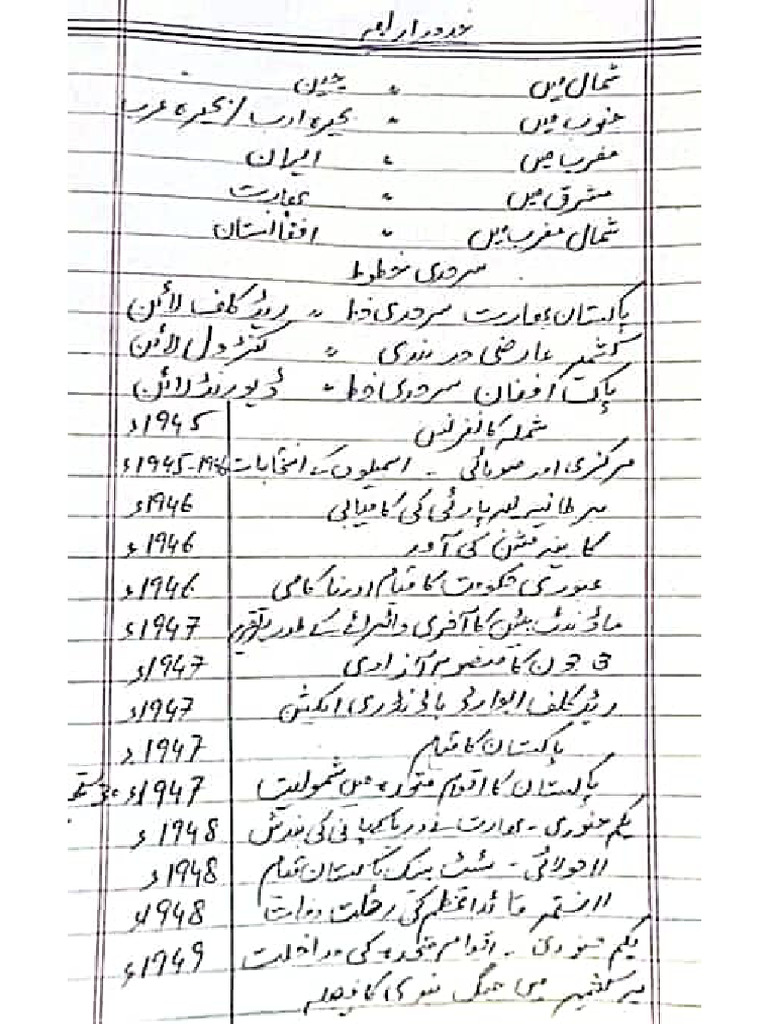 حدود اربعہ
شمال میں " چین
جنوب میں " بحیرہ ادب / بحیرہ عرب
مغرب میں " ایران
مشرق میں " بھارت
شمال مغرب میں " افغانستان
سرحدی خطوط
پاکستان بھارت سرحدی خط " ریڈ کلف لائن
کشمیر عارضی حد بندی " کنٹرول لائن
پاک افغان سرحدی خط " ڈیورنڈ لائن
شملہ کانفرنس 1945ء
مرکزی اور صوبائی - اسمبلیوں کے انتخابات 1945-1946ء
برطانیہ لیبر پارٹی کی کامیابی 1946ء
کابینہ مشن کی آمد 1946ء
عبوری حکومت کا قیام اور ناکامی 1946ء
ماؤنٹ بیٹن کا آخری وائسرائے کے طور پر تقرر 1947ء
3 جون کا منصوبہ آزادی 1947ء
ریڈ کلف ایوارڈ باؤنڈری 1947ء
پاکستان کا قیام 1947ء
پاکستان کا اقوام متحدہ میں شمولیت 1947ء
یکم جنوری - بھارت نے دریا کے پانی کی بندش 1948ء
11 جولائی - سٹیٹ بینک پاکستان قیام 1948ء
11 ستمبر قائداعظم کی رحلت وفات 1948ء
یکم جنوری - اقوام متحدہ کی مداخلت 1949ء
پر کشمیر میں جنگ بندی کا فیصلہ